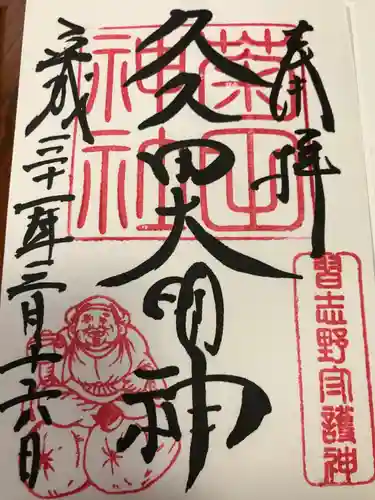 奉拝
習志野守護神
久久田大明神
菊田
神社
平成三十一年三月十六日